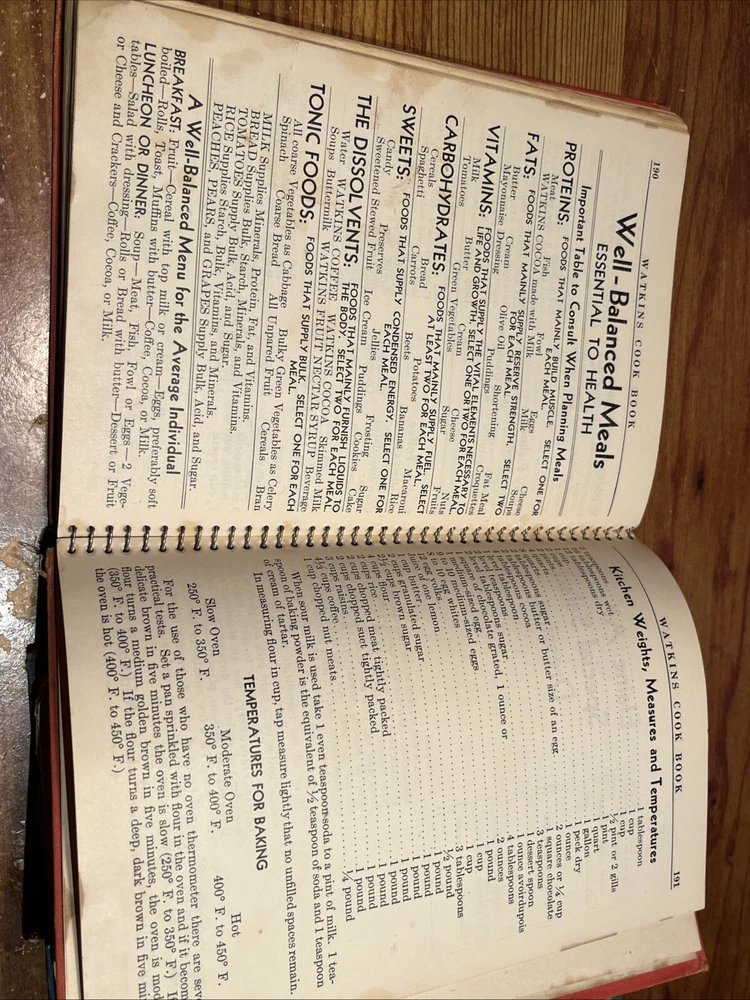 190 WATKINS COOK BOOK
Well-Balanced Meals
ESSENTIAL TO HEALTH
Important Table to Consult When Planning Meals
PROTEINS: FOODS THAT MAINLY BUILD MUSCLE. SELECT ONE FOR
EACH MEAL.
Meat Fish Fowl Eggs Cheese
WATKINS COCOA made with Milk Milk Soups
FATS: FOODS THAT MAINLY SUPPLY RESERVE STRENGTH. SELECT TWO
FOR EACH MEAL.
Butter Cream Olive Oil Shortening Fat Meat
Mayonnaise Dressing Puddings Croquettes
VITAMINS: FOODS THAT SUPPLY THE VITAL ELEMENTS NECESSARY TO
LIFE AND GROWTH. SELECT ONE OR TWO FOR EACH MEAL.
Milk Butter Cream Cheese Nuts
Tomatoes Green Vegetables Fruits
CARBOHYDRATES: FOODS THAT MAINLY SUPPLY FUEL. SELECT
AT LEAST TWO FOR EACH MEAL.
Cereals Bread Potatoes Sugar Macaroni
Spaghetti Carrots Beets Bananas Rice
SWEETS: FOODS THAT SUPPLY CONDENSED ENERGY. SELECT ONE FOR
EACH MEAL.
Candy Preserves Jellies Frosting Sugar
Sweetened Stewed Fruit Ice Cream Puddings Cookies Cake
THE DISSOLVENTS: FOODS THAT MAINLY FURNISH LIQUIDS TO
THE BODY. SELECT TWO FOR EACH MEAL.
Water WATKINS COFFEE WATKINS COCOA Skimmed Milk
Soups Buttermilk WATKINS FRUIT NECTAR SYRUP Beverage
TONIC FOODS: FOODS THAT SUPPLY BULK. SELECT ONE FOR EACH
MEAL.
All coarse Vegetables as Cabbage Bulky Green Vegetables as Celery
Spinach Coarse Bread All Unpared Fruit Cereals Bran
MILK Supplies Minerals, Protein, Fat, and Vitamins.
BREAD Supplies Bulk, Starch, Minerals, and Vitamins.
TOMATOES Supply Bulk, Acid, and Sugar.
RICE Supplies Starch, Bulk, Vitamins, and Minerals.
PEACHES, PEARS, and GRAPES Supply Bulk, Acid, and Sugar.
A Well-Balanced Menu for the Average Individual
BREAKFAST: Fruit—Cereal with top milk or cream—Eggs, preferably soft
boiled—Rolls, Toast, Muffins with butter—Coffee, Cocoa, or Milk.
LUNCHEON OR DINNER: Soup—Meat, Fish, Fowl or Eggs—2 Vege-
tables—Salad with dressing—Rolls or Bread with butter—Dessert or Fruit
or Cheese and Crackers—Coffee, Cocoa, or Milk.
WATKINS COOK BOOK 191
Kitchen Weights, Measures and Temperatures
1 tablespoon
1 cup
1 cup
½ pint or 2 gills
1 pint
1 quart
1 gallon
1 peck dry
1 ounce
butter or butter size of an egg 2 ounces or ¼ cup
cocoa 1 square chocolate
3 teaspoons
1 dessert spoon
chocolate grated, 1 ounce or 4 tablespoons
2 ounces
1 pound
1 cup
1 cup
lemon 3 tablespoons
granulated sugar ½ pound
cups brown sugar 1 pound
cups flour 1 pound
cups rice 1 pound
2 cups chopped meat tightly packed 1 pound
2 cups chopped suet tightly packed 1 pound
2 cups raisins 1 pound
4½ cups coffee 1 pound
1 cup chopped nut meats ¼ pound
When sour milk is used take 1 even teaspoon soda to a pint of milk. 1 tea-
spoon of baking powder is the equivalent of ½ teaspoon of soda and 1 teaspoon
of cream of tartar.
In measuring flour in cup, tap measure lightly that no unfilled spaces remain.
TEMPERATURES FOR BAKING
Slow Oven Moderate Oven Hot
250° F. to 350° F. 350° F. to 400° F. 400° F. to 450° F.
For the use of those who have no oven thermometer there are
practical tests. Set a pan sprinkled with flour in the oven and if it
delicate brown in five minutes the oven is slow (250° F. to 350° F.)
flour turns a medium golden brown in five minutes, the oven is
(350° F. to 400° F.) If the flour turns a deep, dark brown in five
the oven is hot (400° F. to 450° F.)